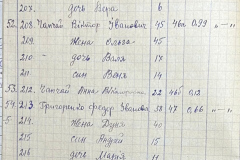 207. дочь Вера 6
52. 208. Чантай Виктор Иванович 45 46а 0,99 " — "
209. жена Ольга 45
210. — " дочь Валя 17
211. сын Ваня 14
53. 212. Чантай Анна 22 46б 0,12
54. 213. Григоренко Федор Иванов. 38 47 0,66 " — "
214. жена Дуня 40
215 сын Андрей 15
216 дочь Мария 11